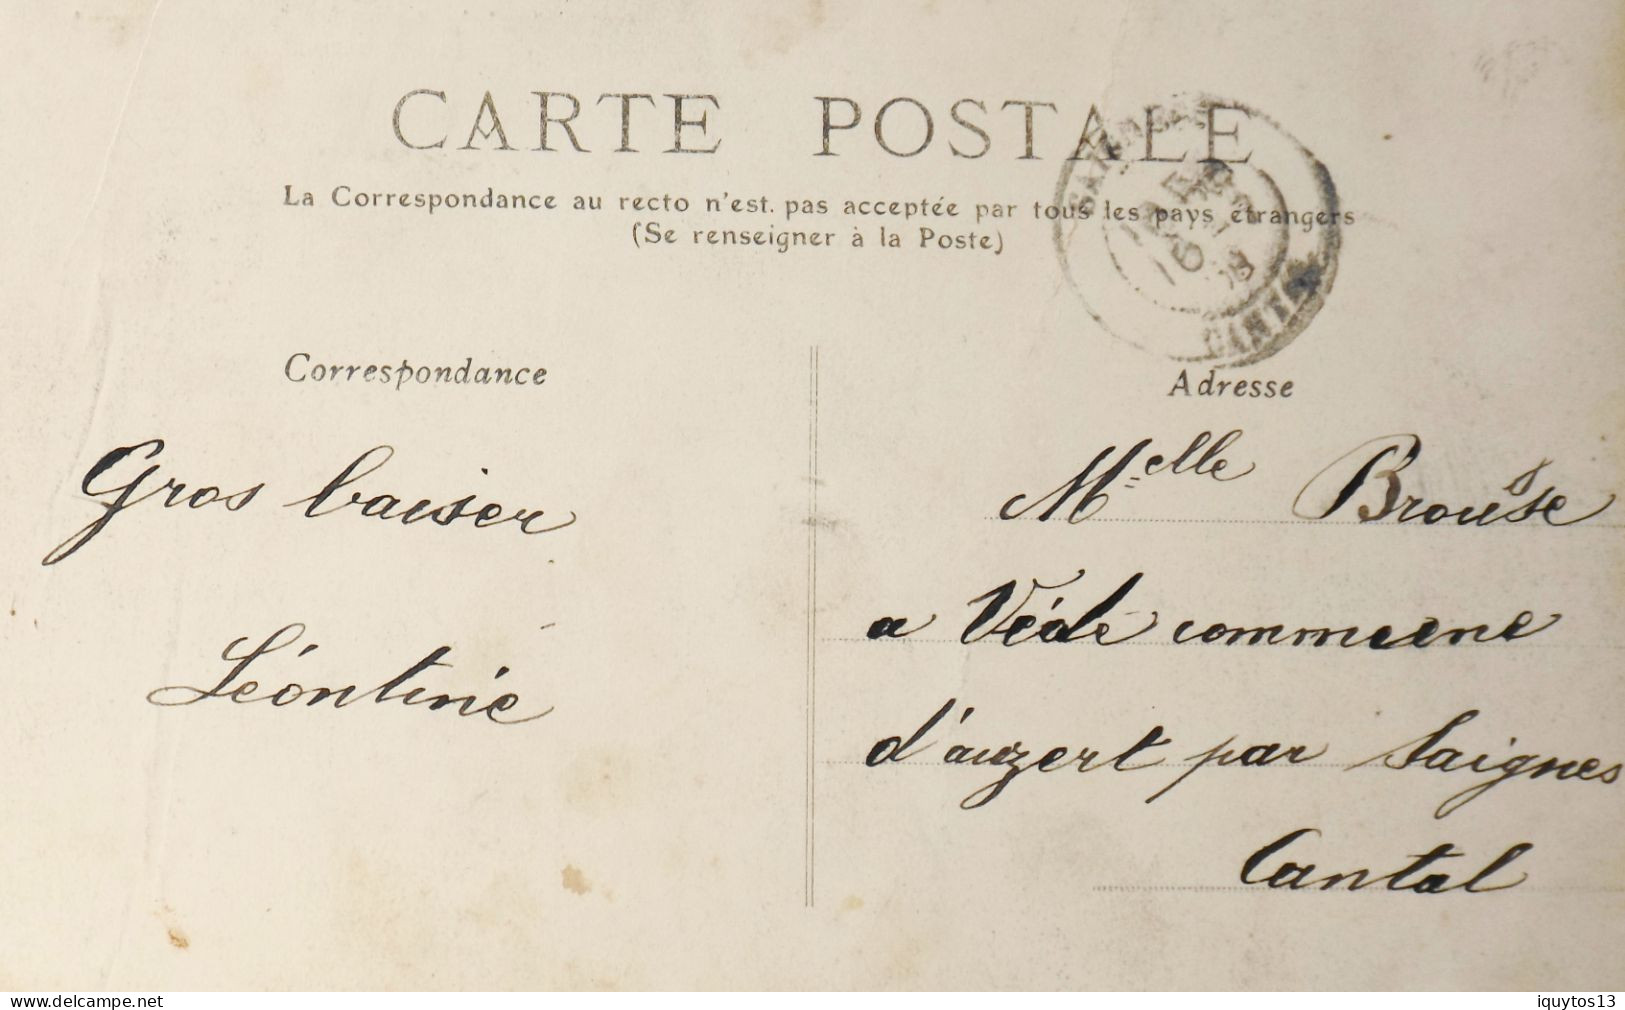 CARTE POSTALE
La Correspondance au recto n'est. pas acceptée par tous les pays étrangers
(Se renseigner à la Poste)
CANTAL
Correspondance
Gros baiser
Léontine
Adresse
Melle Brousse
a Véde commune
d'auzert par Saignes
Cantal
www.delcampe.net
iquytos13